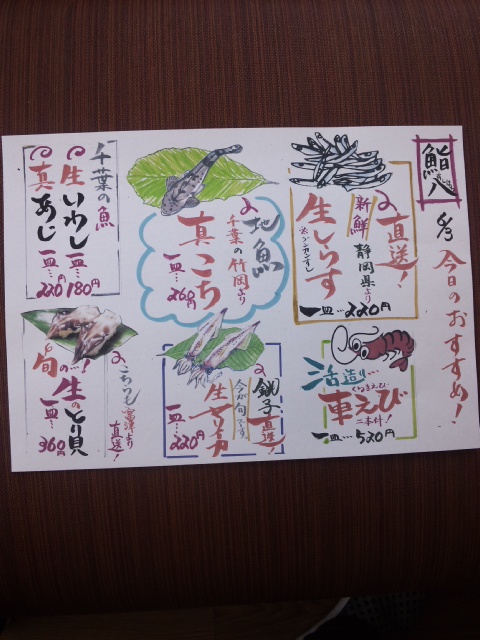 鮨八
今日のおすすめ!
直送!
新鮮 静岡県より
生しらす
一皿…220円
地魚
千葉の竹岡より
真こち
一皿…260円
千葉の魚
生いわし
一皿…180円
真あじ
一皿…220円
活造り…
車えび
(くるまえび)
二本付!
一皿…520円
銚子直送!
今が旬です
生ヤリイカ
一皿…220円
こちらも富津より
直送!
旬の…!
生のとり貝
一皿…360円